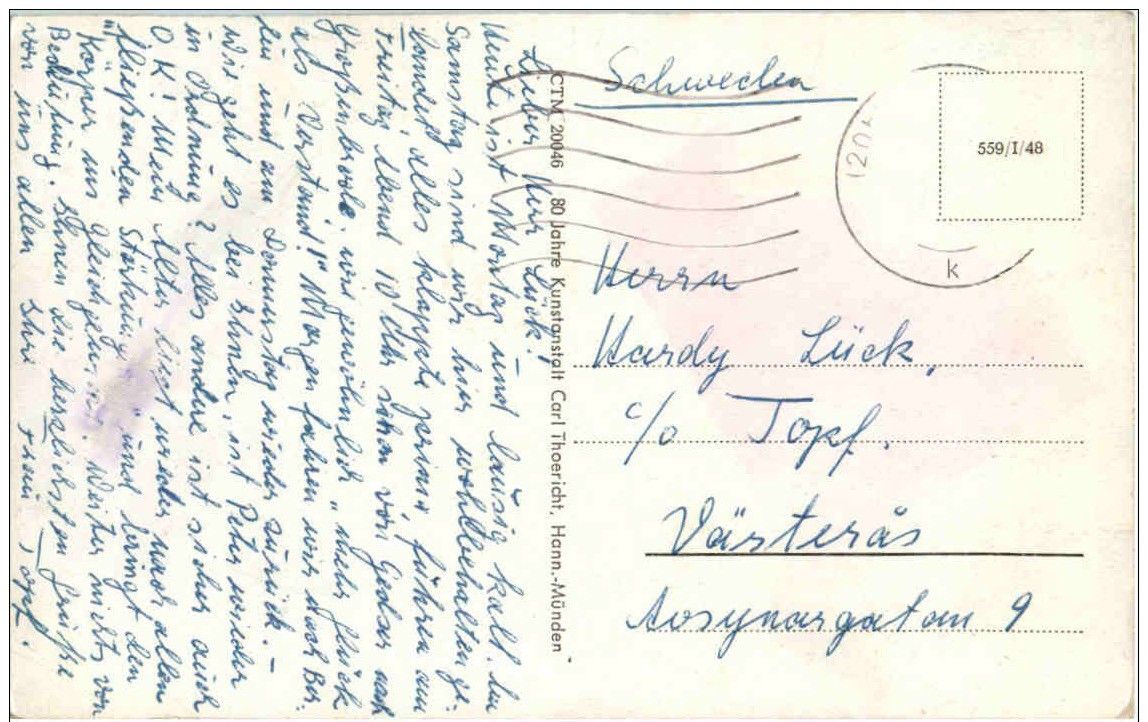 Lieber Herr Lück!
Heute ist Montag und lausig kalt. Am
Samstag sind wir hier wohlbehalten ge-
landet alles klappte prima, fuhren am
Freitag Abend 10 Uhr schon von Gedser nach
Großenbrode. wie gewöhnlich "mehr Glück
als Verstand!" Morgen fahren wir nach Ber-
lin und am Donnerstag wieder zurück. –
Wie geht es bei Ihnen, ist Peter wieder
in Ordnung? Alles andere ist sicher auch
O K! Mein Alter liegt wieder nach allen
"fließenden Stärkung" und bringt den
Körper ins Gleichgewicht. Weiter nichts von
Bedeutung. Ihnen die herzlichsten Grüße
von uns allen Ihre Fam. Topf.
CTM 20046 80 Jahre Kunstanstalt Carl Thoericht, Hann.-Münden
Schweden
120
k
559/I/48
Herrn
Hardy Lück,
c/o Topf.
Västerås
Aosynargatan 9